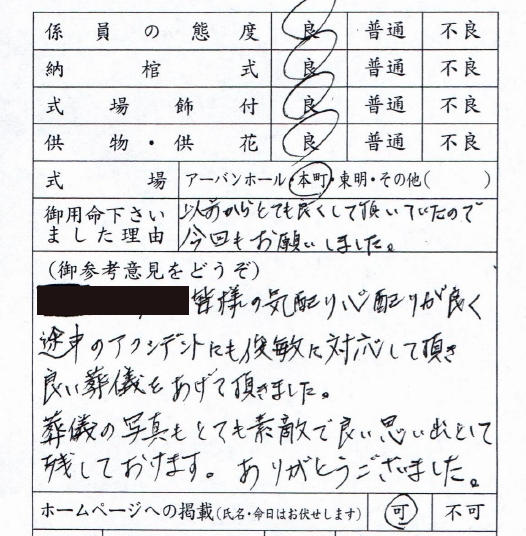 係員の態度 良 普通 不良
納棺式 良 普通 不良
式場飾付 良 普通 不良
供物・供花 良 普通 不良
式場 アーバンホール・本町・東明・その他( )
御用命下さいました理由 以前からとても良くして頂いていたので
今回もお願いしました。
(御参考意見をどうぞ)
皆様の気配り心配りが良く
途中のアクシデントにも俊敏に対応して頂き
良い葬儀をあげて頂きました。
葬儀の写真もとても素敵で良い思い出として
残しておけます。ありがとうございました。
ホームページへの掲載(氏名・命日はお伏せします) 可 不可